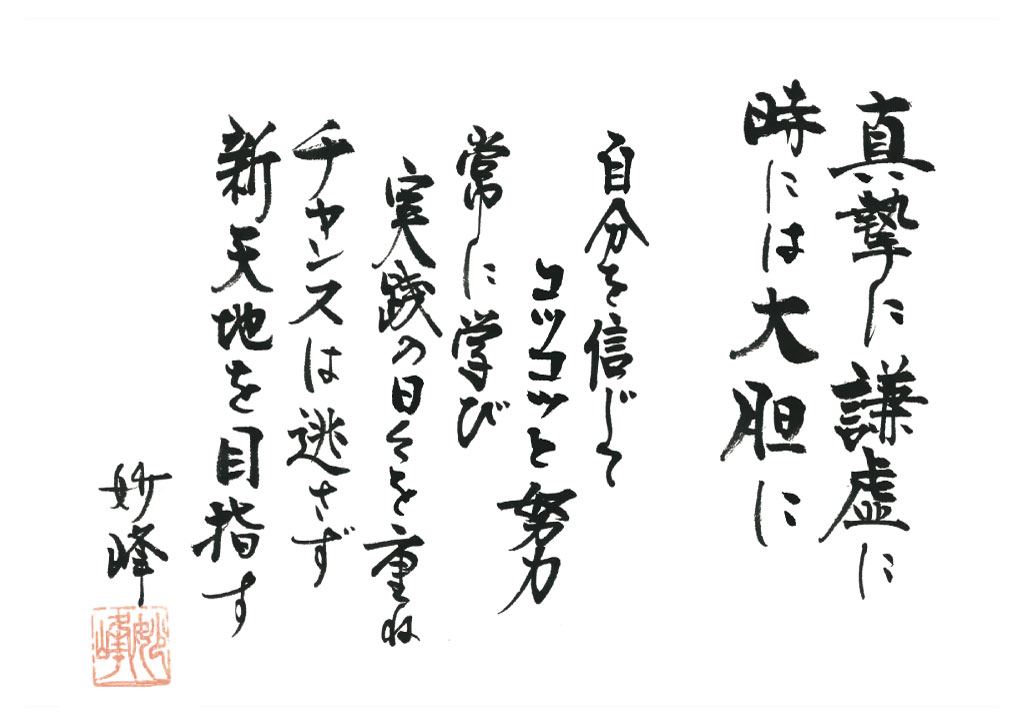 真摯に謙虚に
時には大胆に
自分を信じて
コツコツと努力
常に学び
実践の日々を重ね
チャンスは逃さず
新天地を目指す
妙峰
妙峰